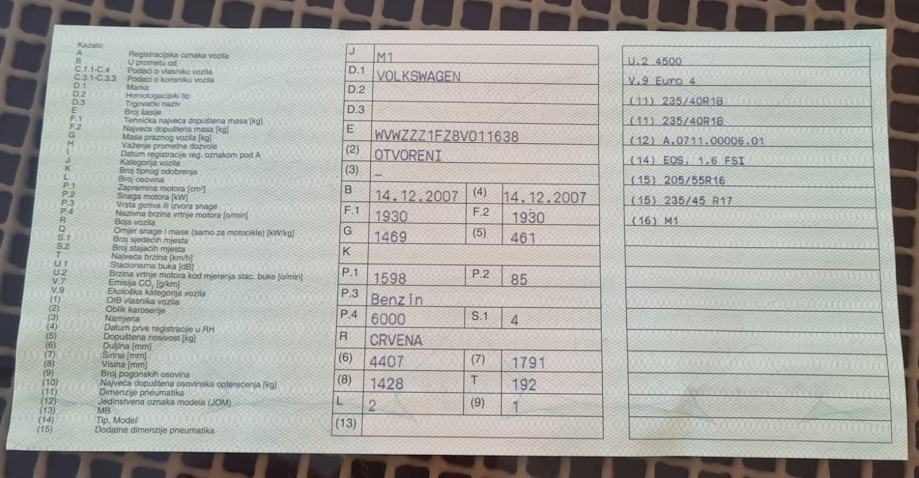 Kazalo:
A Registracijska oznaka vozila
B U prometu od
C.1.1-C.4 Podaci o vlasniku vozila
C.3.1-C.3.3 Podaci o korisniku vozila
D.1 Marka
D.2 Homologacijski tip
D.3 Trgovački naziv
E Broj šasije
F.1 Tehnička najveća dopuštena masa [kg]
F.2 Najveća dopuštena masa [kg]
G Masa praznog vozila [kg]
H Važenje prometne dozvole
I Datum registracije reg. oznakom pod A
J Kategorija vozila
K Broj tipnog odobrenja
L Broj osovina
P.1 Zapremina motora [cm³]
P.2 Snaga motora [kW]
P.3 Vrsta goriva ili izvora snage
P.4 Nazivna brzina vrtnje motora [o/min]
R Boja vozila
Q Omjer snage i mase (samo za motocikle) [kW/kg]
S.1 Broj sjedećih mjesta
S.2 Broj stajaćih mjesta
T Najveća brzina [km/h]
U.1 Stacionarna buka [dB]
U.2 Brzina vrtnje motora kod mjerenja stac. buke [o/min]
V.7 Emisija CO₂ [g/km]
V.9 Ekološka kategorija vozila
(1) OIB vlasnika vozila
(2) Oblik karoserije
(3) Namjena
(4) Datum prve registracije u RH
(5) Dopuštena nosivost [kg]
(6) Duljina [mm]
(7) Širina [mm]
(8) Visina [mm]
(9) Broj pogonskih osovina
(10) Najveća dopuštena osovinska opterećenja [kg]
(11) Dimenzije pneumatika
(12) Jedinstvena oznaka modela (JOM)
(13) MB
(14) Tip, Model
(15) Dodatne dimenzije pneumatika
J M1
D.1 VOLKSWAGEN
D.2
D.3
E WVWZZZ1FZ8V011638
(2) OTVORENI
(3) –
B 14.12.2007 (4) 14.12.2007
F.1 1930 F.2 1930
G 1469 (5) 461
K
P.1 1598 P.2 85
P.3 Benzin
P.4 6000 S.1 4
R CRVENA
(6) 4407 (7) 1791
(8) 1428 T 192
L 2 (9) 1
(13)
U.2 4500
V.9 Euro 4
(11) 235/40R18
(11) 235/40R18
(12) A.0711.00006.01
(14) EOS, 1.6 FSI
(15) 205/55R16
(15) 235/45 R17
(16) M1